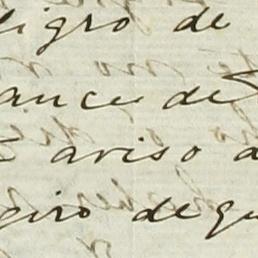 ligro de
ance de
aviso a
giro de qu